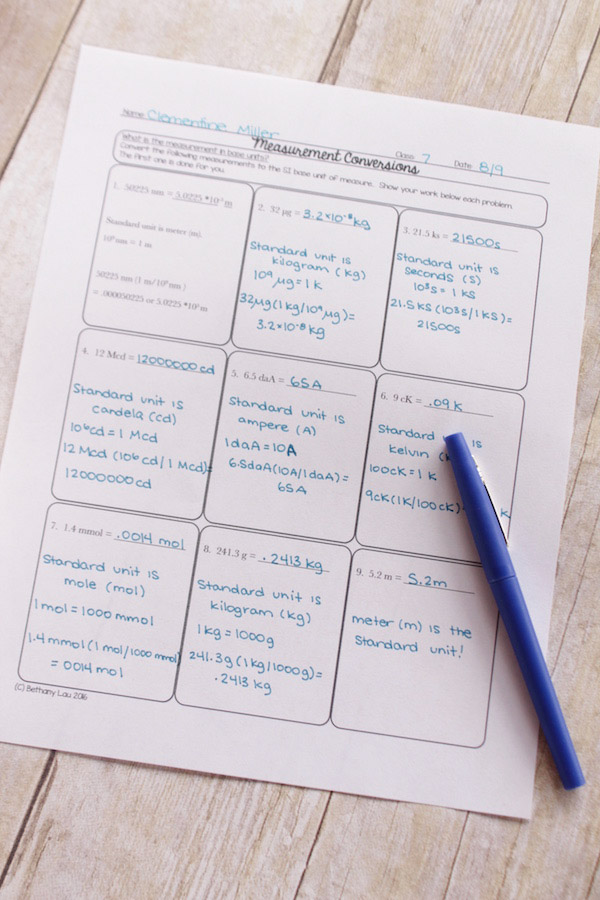 Name: Clementine Miller
Class: 7 Date: 8/9
Measurement Conversions
What is the measurement in base units?
Convert the following measurements to the SI base unit of measure. Show your work below each problem.
The first one is done for you.
1. 50225 nm = 5.0225 *10 m
Standard unit is meter (m).
10⁹ nm = 1 m
50225 nm (1 m/10⁹ nm)
= .000050225 or 5.0225 *10 m
2. 32 µg = 3.2×10⁻⁸kg
Standard unit is
kilogram (kg)
10⁹ µg = 1k
32µg(1kg/10⁹ µg)=
3.2×10⁻⁸ kg
3. 21.5 ks = 21500s
Standard unit is
seconds (s)
10³s = 1 ks
21.5 ks (10³s/1ks)=
21500s
4. 12 Mcd = 12000000 cd
Standard unit is
candela (cd)
10⁶cd = 1 Mcd
12 Mcd (10⁶cd/1 Mcd)=
12000000cd
5. 6.5 daA = 65A
Standard unit is
ampere (A)
1daA = 10A
6.5daA(10A/1daA)=
65A
6. 9 cK = .09 K
Standard is
kelvin
100cK = 1 K
9cK(1K/100cK) K
7. 1.4 mmol = .0014 mol
Standard unit is
mole (mol)
1mol = 1000 mmol
1.4 mmol(1 mol/1000 mmol)
= 0014 mol
8. 241.3 g = .2413 kg
Standard unit is
kilogram (kg)
1kg = 1000g
241.3g(1kg/1000g)=
.2413 kg
9. 5.2 m = 5.2m
meter (m) is the
Standard unit!
(C) Bethany Lau 2016